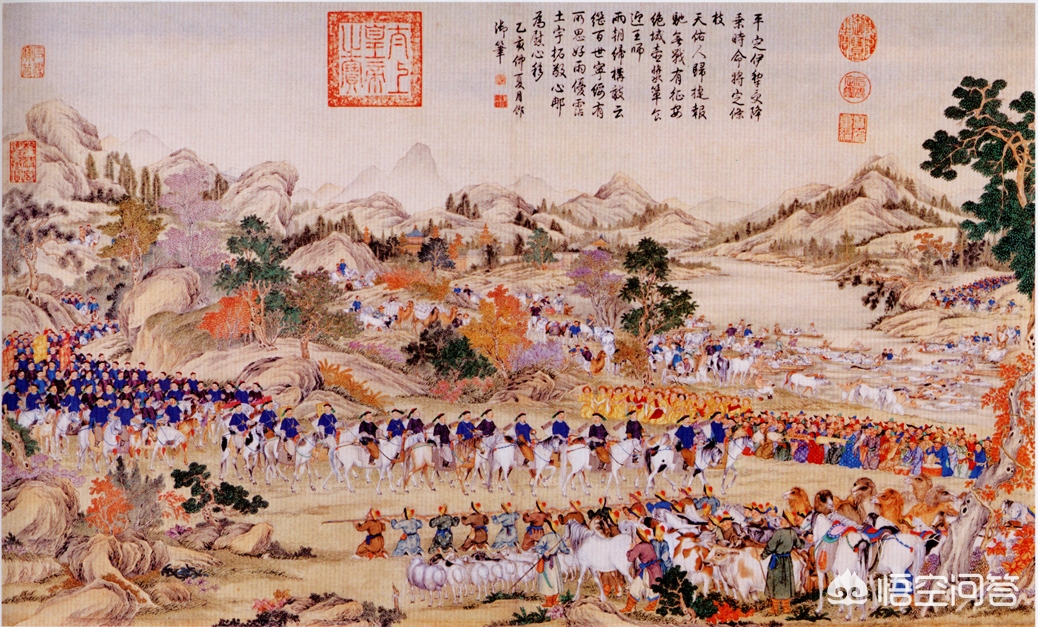 平定伊犁受降
乘時命將定條
枝
天佑人歸捷報
馳無戰有征安
絕域壺漿簞食
迎王師
兩朝締構敢云
繼百世寧綏有
所思好雨優霑
土宇拓敬心那
為慰心移
乙亥仲夏月作
御筆
太上皇帝之寶
悟空问答